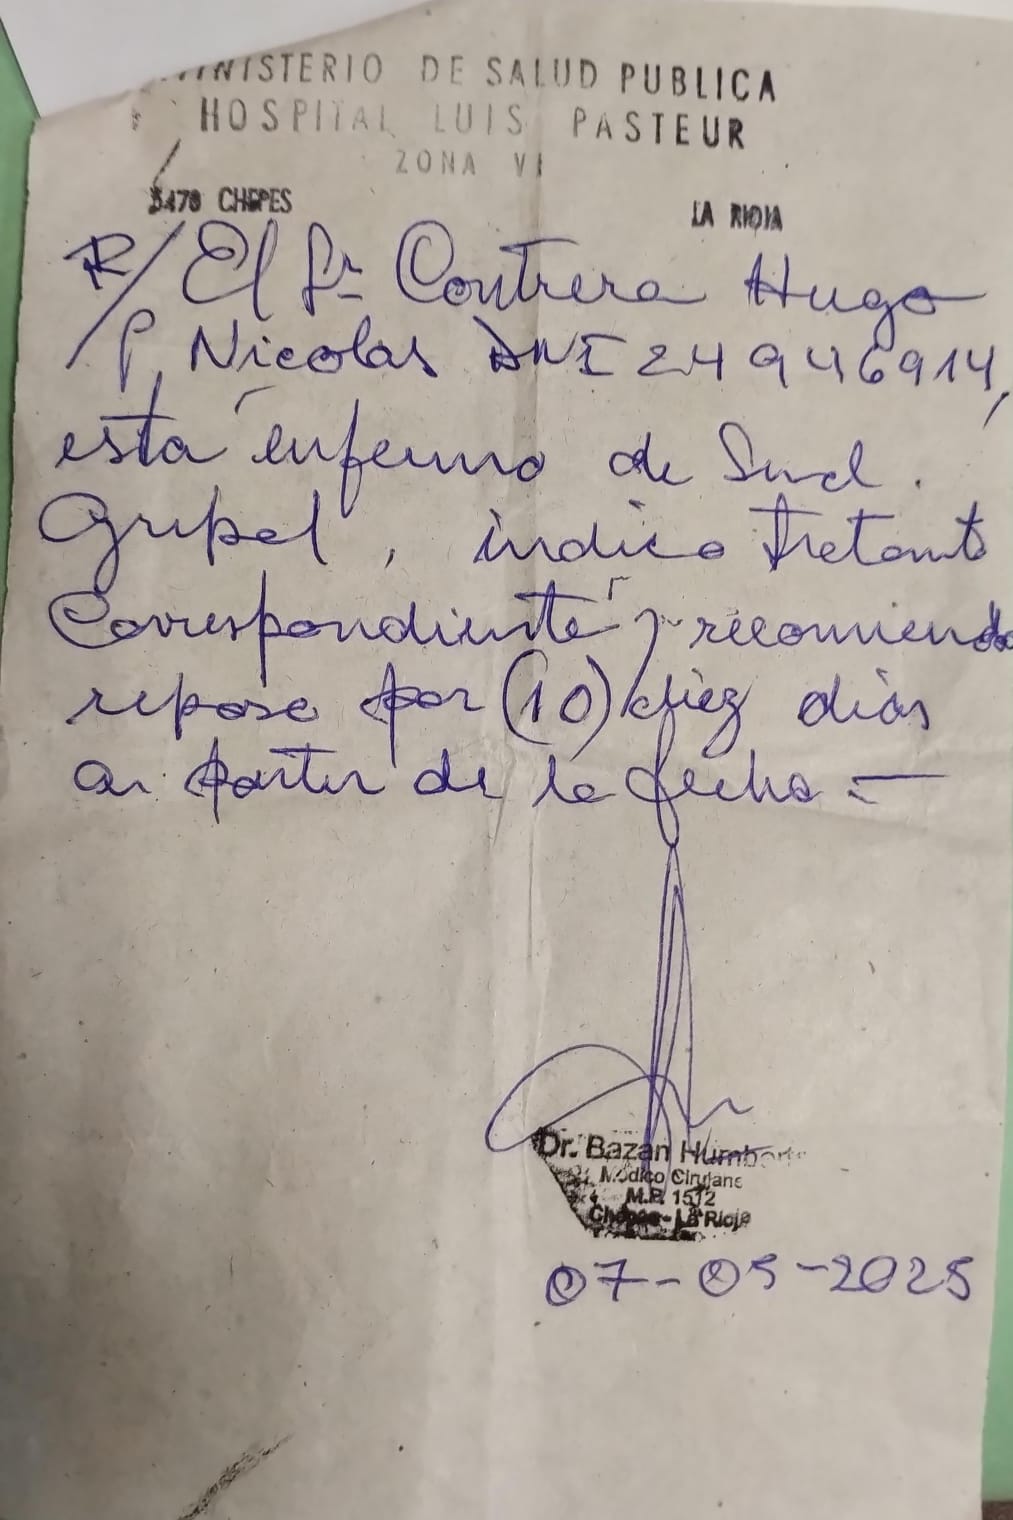 MINISTERIO DE SALUD PUBLICA
HOSPITAL LUIS PASTEUR
ZONA VI
5470 CHEPES LA RIOJA
R/ El Sr Contrera Hugo
/P. Nicolas DNI 24946914,
está enfermo de Sind.
Gripal, indico tratamto
correspondiente y recomiendo
reposo por (10) diez días
a partir de la fecha.-
Dr. Bazan Humberto
Médico Cirujano
M.P. 1512
Chepes - La Rioja
07-05-2025